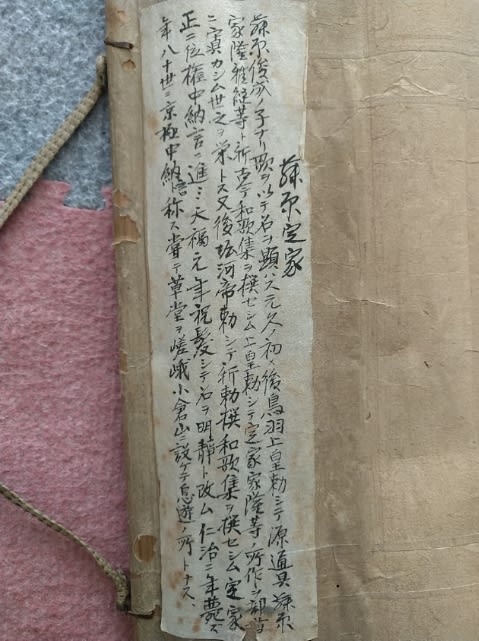 藤原定家
藤原俊成ノ子ナリ歌ヲ以テ名ヲ顕ハス元久ノ初メ後鳥羽上皇勅シテ源通具藤原
家隆雅経等ト新古今和歌集ヲ撰セシム上皇勅シテ定家家隆等ノ所作ヲ部首
ニ寘カシム世之ヲ栄トス又後堀河帝勅シテ新勅撰和歌集ヲ撰セシム定家
正二位権中納言ニ進ミ天福元年祝髪シテ名ヲ明静ト改ム仁治二年薨ズ
年八十世ニ京極中納言ト称ス嘗テ草堂ヲ嵯峨小倉山ニ設ケテ息遊ノ所トナス、